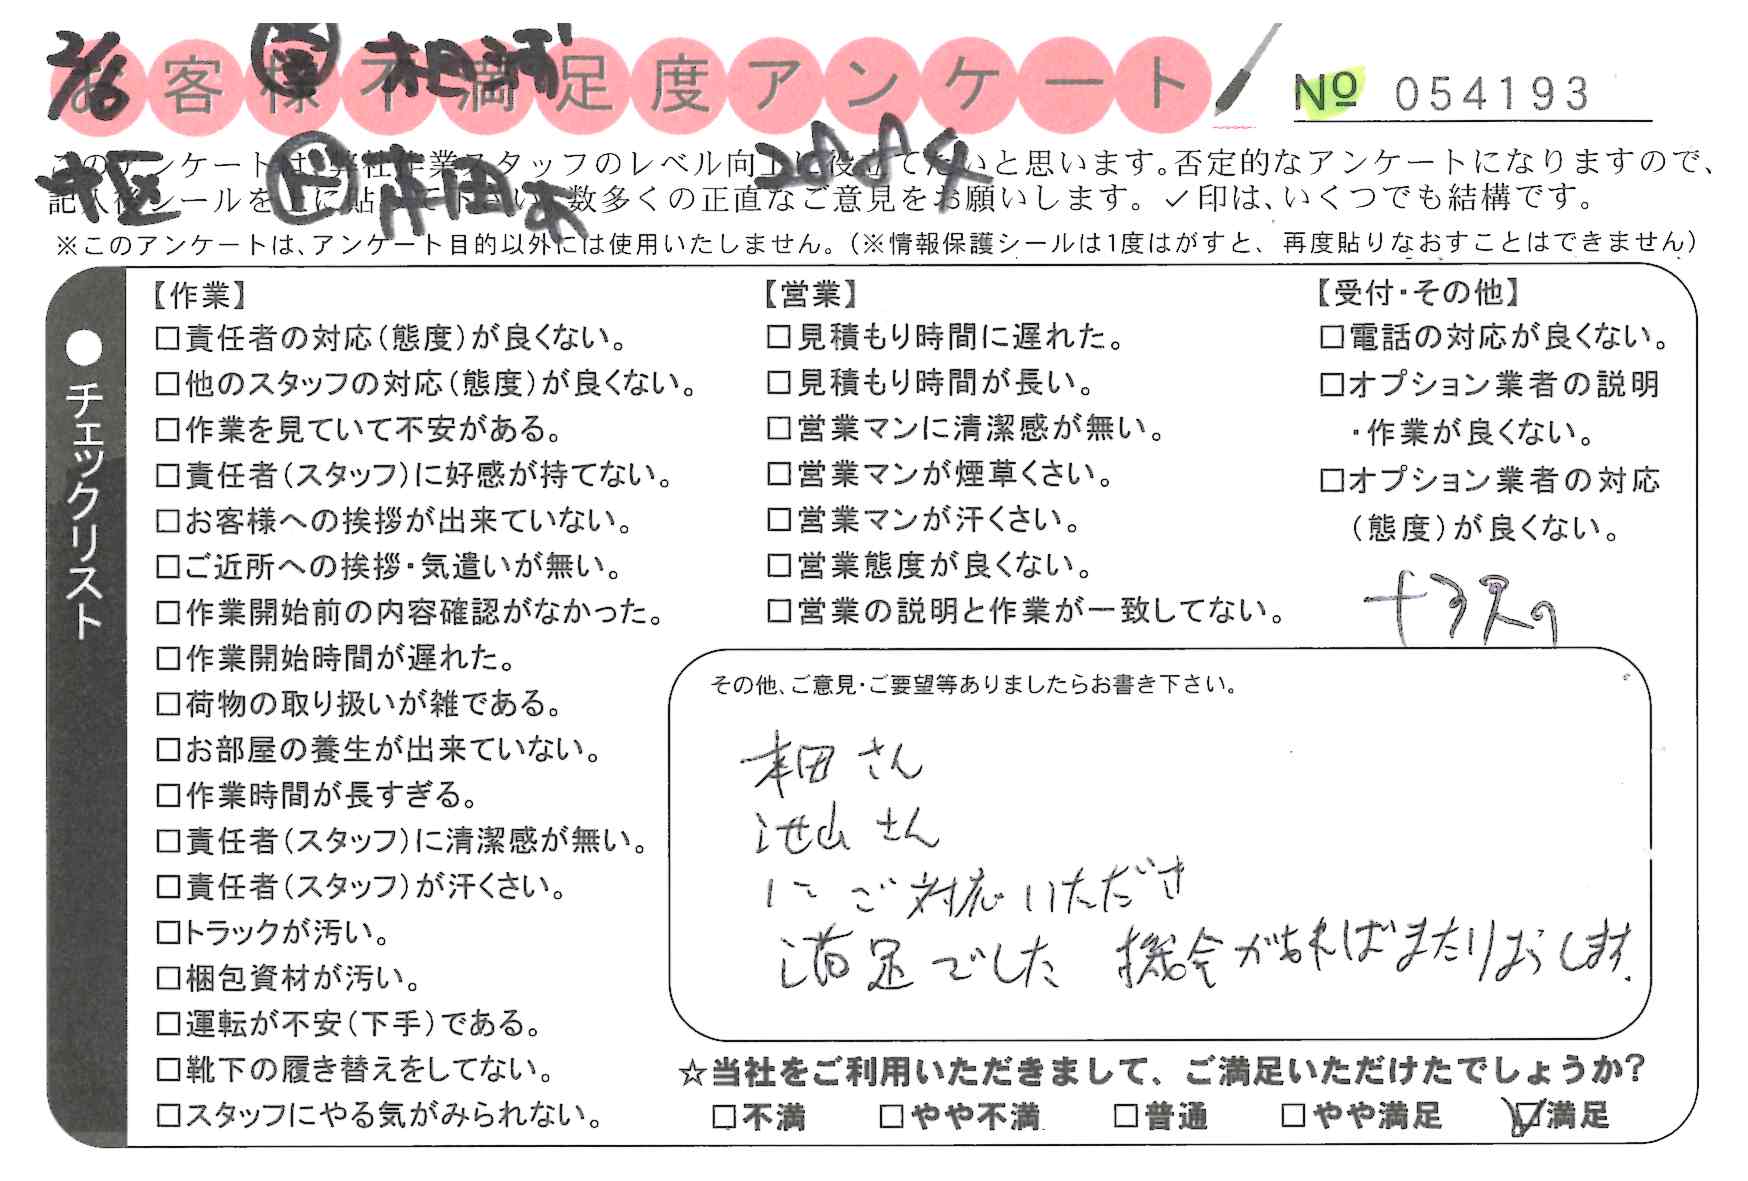 2/6
お客様不満足度アンケート
№ 054193
このアンケートは、弊社作業スタッフのレベル向上に役立てたいと思います。否定的なアンケートになりますので、
記入後シールを上に貼って下さい。数多くの正直なご意見をお願いします。✓印は、いくつでも結構です。
※このアンケートは、アンケート目的以外には使用いたしません。(※情報保護シールは1度はがすと、再度貼りなおすことはできません)
●チェックリスト
【作業】
□責任者の対応(態度)が良くない。
□他のスタッフの対応(態度)が良くない。
□作業を見ていて不安がある。
□責任者(スタッフ)に好感が持てない。
□お客様への挨拶が出来ていない。
□ご近所への挨拶・気遣いが無い。
□作業開始前の内容確認がなかった。
□作業開始時間が遅れた。
□荷物の取り扱いが雑である。
□お部屋の養生が出来ていない。
□作業時間が長すぎる。
□責任者(スタッフ)に清潔感が無い。
□責任者(スタッフ)が汗くさい。
□トラックが汚い。
□梱包資材が汚い。
□運転が不安(下手)である。
□靴下の履き替えをしてない。
□スタッフにやる気がみられない。
【営業】
□見積もり時間に遅れた。
□見積もり時間が長い。
□営業マンに清潔感が無い。
□営業マンが煙草くさい。
□営業マンが汗くさい。
□営業態度が良くない。
□営業の説明と作業が一致してない。
【受付・その他】
□電話の対応が良くない。
□オプション業者の説明
・作業が良くない。
□オプション業者の対応
(態度)が良くない。
その他、ご意見・ご要望等ありましたらお書き下さい。
本田さん
池山さん
にご対応いただき
満足でした 機会があればまたりおします.
☆当社をご利用いただきまして、ご満足いただけたでしょうか?
□不満 □やや不満 □普通 □やや満足 ☑満足